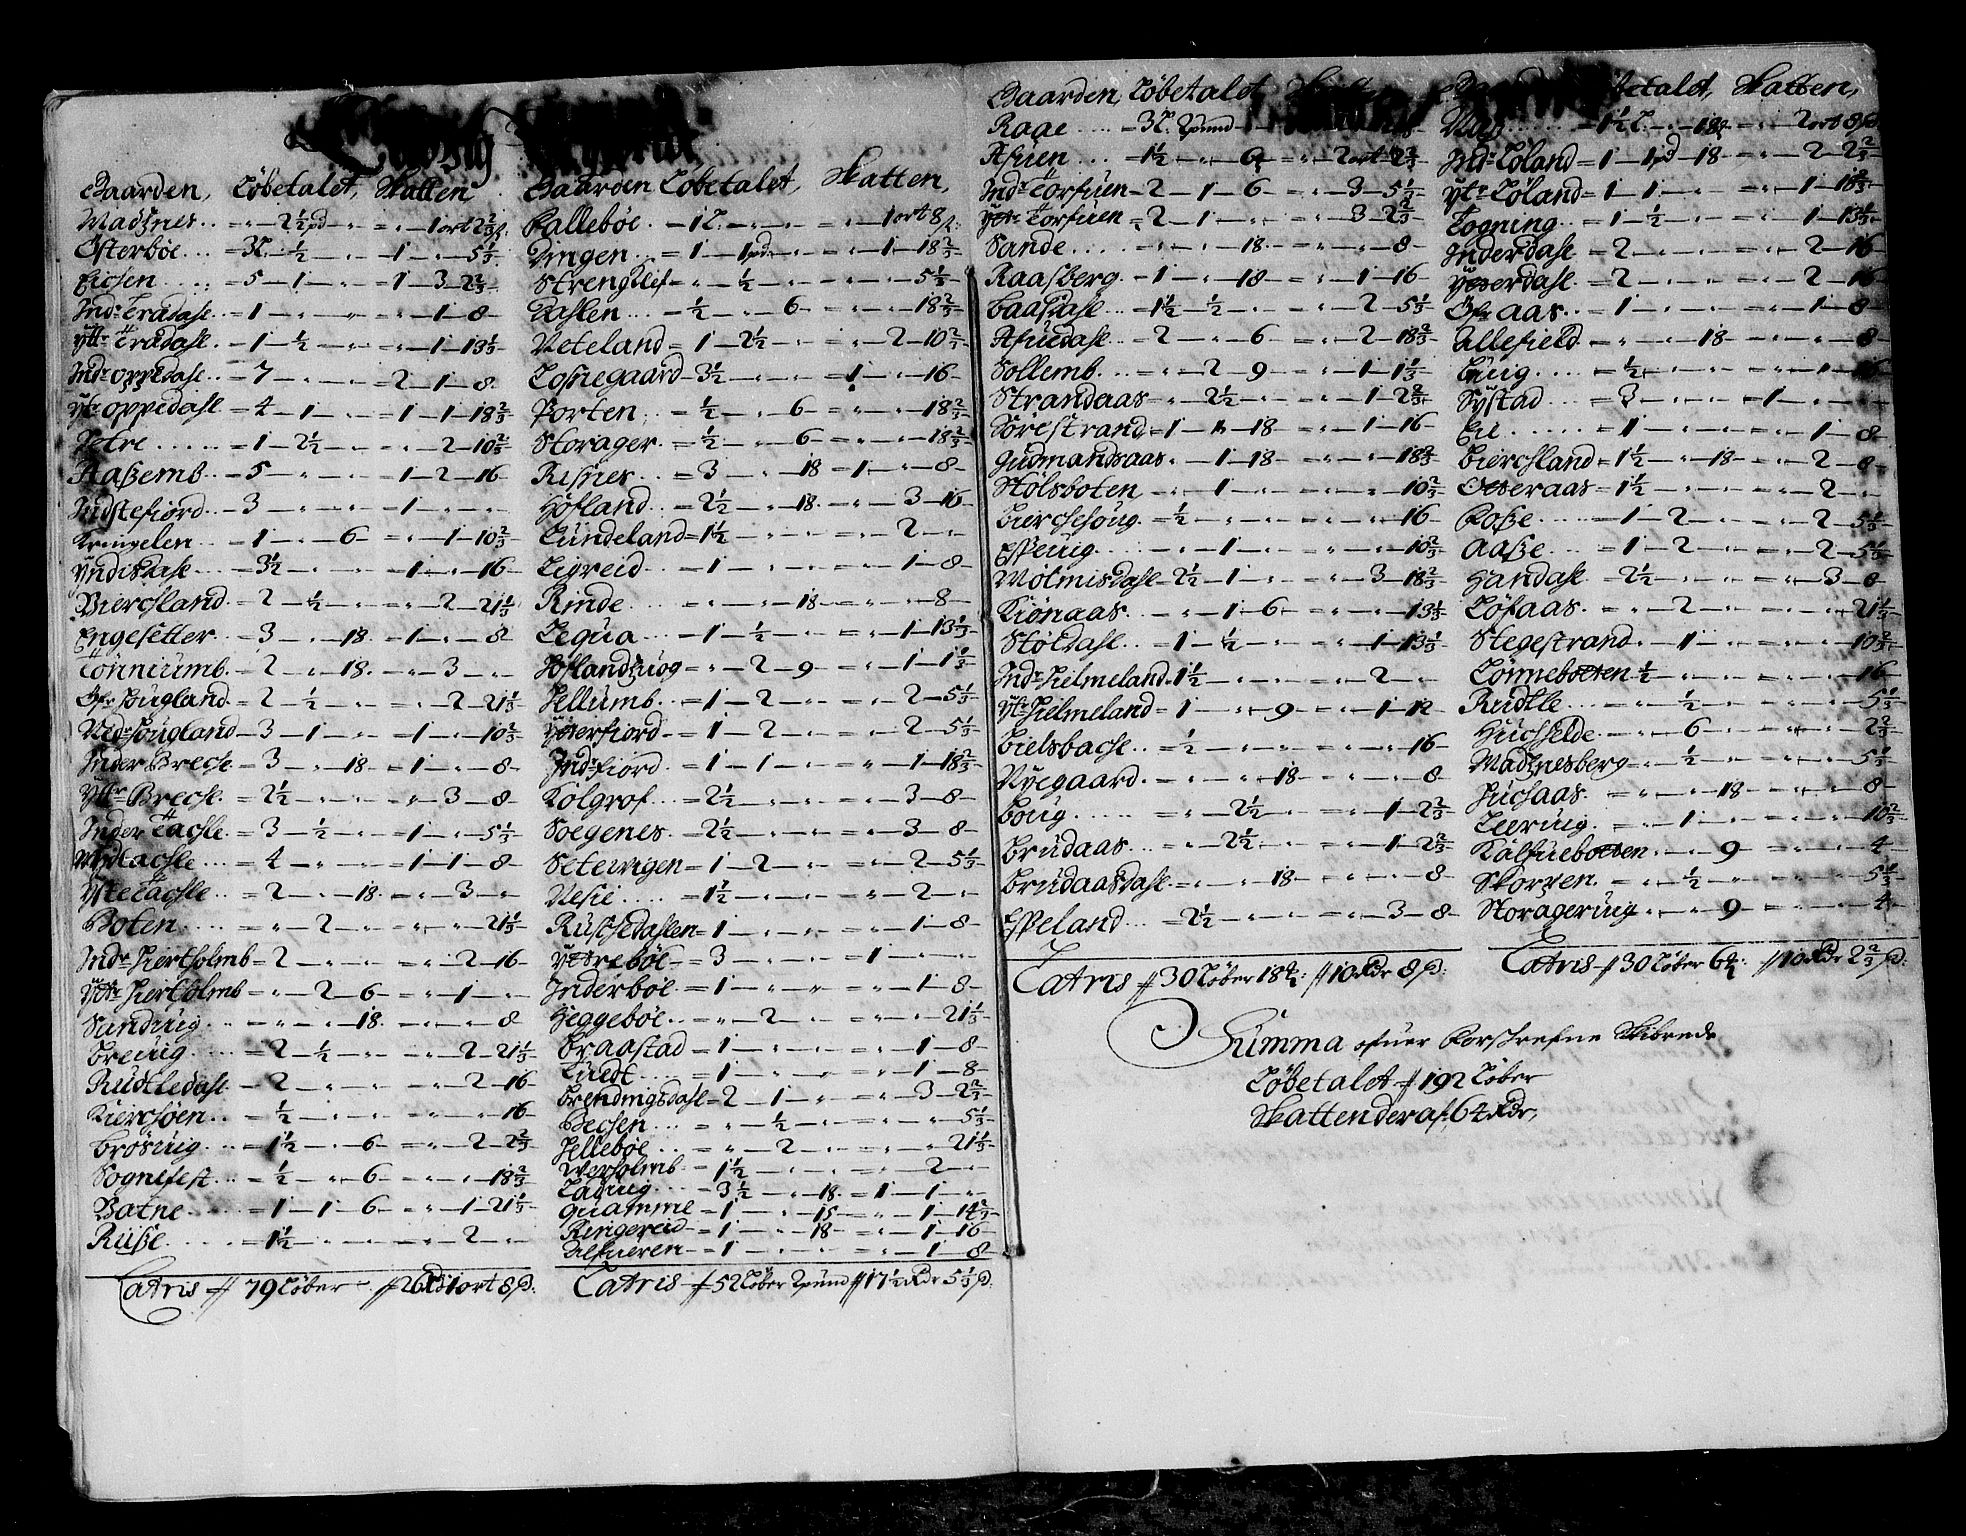 Gaarden, Löbetalet, Skatten
Madznes .. = „ — 2½ pd — „ — = 1 ort 2⅔ s.
Østerböe ... = 3 L. — ½ — „ — = 1 — „ — 5⅓
Eichen .... = 5 — 1 — „ — = 1 — 3 — 2⅔
Indr Tradahl .. = 1 — „ — „ — = „ — 1 — 8
Ytr Tradahl .. = 1 — ½ — „ — = „ — 1 — 13⅓
Indr oppedahl .. = 7 — „ — „ — = 2 — 1 — 8
Ytr oppedahl = 4 — 1 — „ — = 1 — 1 — 18⅔
Petre ...... = 1 — 2½ — „ — = „ — 2 — 10⅔
Haßemb .. = 5 — „ — „ — = 1 — 2 — 16
Indstefiord .. = 3 — „ — „ — = 1 — „ — „
Kringelen .. = 1 — „ — 6 — = „ — 1 — 10⅔
Yndisdahl .. = 3½ — „ — „ — = 1 — „ — 16
Bierchland = 2 — ½ — „ — = „ — 2 — 21⅓
Engesetter .. = 3 — „ — 18 — = 1 — „ — 8
Tönniumb .. = 2 — „ — 18 — = „ — 3 — „
Øfr Hougland = 2 — ½ — „ — = „ — 2 — 21⅓
Nedr Hougland = 3 — 1 — „ — = 1 — „ — 10⅔
Inder Breche = 3 — „ — 18 — = 1 — „ — 8
Yttr Breche = 2½ — „ — „ — = „ — 3 — 8
Inder Tachle = 3 — ½ — „ — = 1 — „ — 5⅓
Midtachle ... = 4 — „ — „ — = 1 — 1 — 8
Yttetachle .. = 2 — „ — 18 — = „ — 3 — „
Boten ..... = „ — 2 — „ — = „ — „ — 21⅓
Indr Hiertholmb = 2 — „ — „ — = „ — 2 — 16
Yttr Hiertholmb = „ — 2 — 6 — = „ — 1 — „
Sanduug .. = „ — „ — 18 — = „ — „ — 8
Breuug ... = 2 — ½ — „ — = „ — 2 — 21⅓
Rudtledahl = 2 — „ — „ — = „ — 2 — 16
Kierchöen .. = ½ — „ — „ — = „ — „ — 16
Brösuug ... = 1½ — „ — 6 — = „ — 2 — 2⅔
Sognefest .. = ½ — „ — 6 — = „ — „ — 18⅔
Batne .... = 1 — 1 — 6 — = „ — 1 — 21⅓
Ruße ..... = 1½ — „ — „ — = „ — 2 — „
Latris ƒ 79 Löber — ƒ 26 Rdr 1 ort 8 s.
Gaarden Löbetalet, Skatten,
Pallebøe .. = 1 L. — „ — „ — = „ 1 ort 8 s.
Vingen .. = 1 — 1 pd — „ — = „ — 1 — 18⅔
Strengelef = „ — ½ — „ — = „ — „ — 5⅓
Dahlen ... = ½ — „ — 6 — = „ — „ — 18⅔
Veteland = 1 — 2½ — „ — = „ — 2 — 10⅔
Losnegaard = 3½ — „ — „ — = 1 — „ — 16
Porten .. = ½ — „ — 6 — = „ — „ — 18⅔
Storager .. = ½ — „ — 6 — = „ — „ — 18⅔
Risnes .. = 3 — „ — 18 — = 1 — „ — 8
Höfland .. = 2½ — „ — 18 — = „ — 3 — 16
Lundeland = 1½ — „ — „ — = „ — 2 — „
Ligreid ... = 1 — „ — „ — = „ — 1 — 8
Rinde .... = „ — „ — 18 — = „ — „ — 8
Legua ... = 1 — ½ — „ — = „ — 1 — 13⅓
Höflandzuog = „ — 2 — 9 — = „ — 1 — 1⅓
Hellumb .. = 1 — 2 — „ — = „ — 2 — 5⅓
Ytterfiord = 1 — 2 — „ — = „ — 2 — 5⅓
Indrfiord .. = 1 — 1 — „ — = „ — 1 — 18⅔
Kolgrof ... = 2½ — „ — „ — = „ — 3 — 8
Soegenes .. = 2½ — „ — „ — = „ — 3 — 8
Seteuigen = 1 — 2 — „ — = „ — 2 — 5⅓
Nesie .... = 1½ — „ — „ — = „ — 2 — „
Ruschedahlen = 1 — „ — „ — = „ — 1 — 8
Yttreböe = 3 — „ — „ — = 1 — „ — „
Inderböe .. = 1 — „ — „ — = „ — 1 — 8
Heggebøe .. = „ — 2 — „ — = „ — „ — 21⅓
Braastad = 1 — „ — „ — = „ — 1 — 8
Tuedt .... = 1 — „ — „ — = „ — 1 — 8
Brendingsdahl = 2 — 1 — „ — = „ — 3 — 2⅔
Bechen ... = „ — ½ — „ — = „ — „ — 5⅓
Helleböe .. = „ — 2 — „ — = „ — „ — 21⅓
Werholmb .. = 1½ — „ — „ — = „ — 2 — „
Laduug ... = 3½ — „ — 18 — = 1 — 1 — „
Quamme = 1 — „ — 15 — = „ — 1 — 14⅔
Ringereid = 1 — „ — 18 — = „ — 1 — 16
Helfueren = 1 — „ — „ — = „ — 1 — 8
Latris ƒ 52 Löber 2 pund ƒ 17½ Rdr 5⅓ s.
Gaarden, Löbetalet
Raae .... = 3 L. 2 pund
Afuen ... = 1½ — „ — 6 — = „ — 2 ort 2⅔
Indr Torfuen = 2 — 1 — 6 — = „ — 3 — 5⅓
Yttr Torfuen = 2 — 1 — „ — = „ — 3 — 2⅔
Sande .... = „ — „ — 18 — = „ — „ — 8
Raasberg .. = 1 — „ — 18 — = „ — 1 — 16
Baasdahl .. = 1½ — ½ — „ — = „ — 2 — 5⅓
Afuedahl .. = 2 — „ — 6 — = „ — 2 — 18⅔
Sollemb ... = „ — 2 — 9 — = „ — 1 — 1⅓
Strandaas = „ — 2½ — „ — = „ — 1 — 2⅔
Torestrand = 1 — „ — 18 — = „ — 1 — 16
Gudmandsaas „ — 1 — 18 — = „ — „ — 18⅔
Stölsboten = „ — 1 — „ — = „ — „ — 10⅔
Bierchehoug = ½ — „ — „ — = „ — „ — 16
Espeuig .... = „ — 1 — „ — = „ — „ — 10⅔
Molmisdahl = 2½ — 1 — „ — = „ — 3 — 18⅔
Kionaas .. = „ — 1 — 6 — = „ — „ — 13⅓
Stöldahl .. = 1 — ½ — „ — = „ — 1 — 13⅓
Indr Hielmeland = 1½ — „ — „ — = „ — 2 — „
Ytr Hielmeland = 1 — „ — 9 — = „ — 1 — 12
Bielsbache .. = ½ — „ — „ — = „ — „ — 16
Nyegaard .. = „ — „ — 18 — = „ — „ — 8
Houg ..... = „ — 2½ — „ — = „ — 1 — 2⅔
Brudaas ... = „ — 2½ — „ — = „ — 1 — 2⅔
Brudaasdahl = „ — „ — 18 — = „ — „ — 8
Espeland ... = 2½ — „ — „ — = „ — 3 — 8
Latris ƒ 30 Löber 18 ƒ 10 Rdr 8 s.
Löbetalet, Skatten,
= 1½ L. — „ — 18 — = „ — 2 ort 8 s
Indr Töland = 1 — 1 pd — 18 — = „ — 2 — 2⅔
Ytr Töland = 1 — 1 — „ — = „ — 1 — 18⅔
Togning .. = 1 — ½ — „ — = „ — 1 — 13⅓
Inderdahl = 2 — „ — „ — = „ — 2 — 16
Ytterdahl = 2 — „ — „ — = „ — 2 — 16
Öfr aas .. = 1 — „ — „ — = „ — 1 — 8
Allefield .. = „ — „ — 18 — = „ — „ — 8
= ½ — „ — „ — = „ — „ — 16
Systad ... = 3 — „ — „ — = 1 — „ — „
Eie ...... = 1 — „ — „ — = „ — 1 — 8
Bierchland = 1½ — „ — 18 — = „ — 2 — 8
Otteraas = 1½ — „ — „ — = „ — 2 — „
Poße .... = 1 — 2 — „ — = „ — 2 — 5⅓
Aaße .... = 1 — 2 — „ — = „ — 2 — 5⅓
Handahl = 2½ — „ — „ — = „ — 3 — 8
Löfaas .. = „ — 2 — „ — = „ — „ — 21⅓
Stegestrand „ — 1 — „ — = „ — „ — 10⅔
Lönneboten ½ — „ — „ — = „ — „ — 16
Rudtle ... = „ — ½ — „ — = „ — „ — 5⅓
Huchhelde = „ — „ — 6 — = „ — „ — 2⅔
Madznesberg = „ — ½ — „ — = „ — „ — 5⅓
Huchaas .. = „ — „ — 18 — = „ — „ — 8
Leeruug .. = „ — 1 — „ — = „ — „ — 10⅔
Kalfueboten „ — „ — 9 — = „ — „ — 4
Skorpen .. = „ — ½ — „ — = „ — „ — 5⅓
Storageruug „ — „ — 9 — = „ — „ — 4
Latris ƒ 30 Löber 6 ƒ 10 Rdr 2⅔ s.
Summa ofuer Forschrefne Skibrede
Löbetalet ƒ 192 Löber
Skatten deraf 64 Rdr,